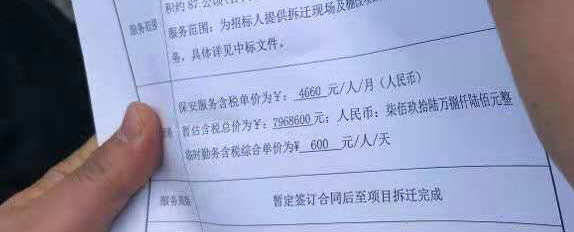 积约 87 公顷
服务范围
服务范围：为招标人提供拆迁现场及棚
务，具体详见中标文件。
保安服务含税单价为￥： 4660 元/人/月（人民币）
暂估含税总价为￥：7968600 元；人民币：柒佰玖拾陆万捌仟陆佰元整
临时勤务含税综合单价为￥ 600 元/人/天
服务期限
暂定签订合同后至项目拆迁完成